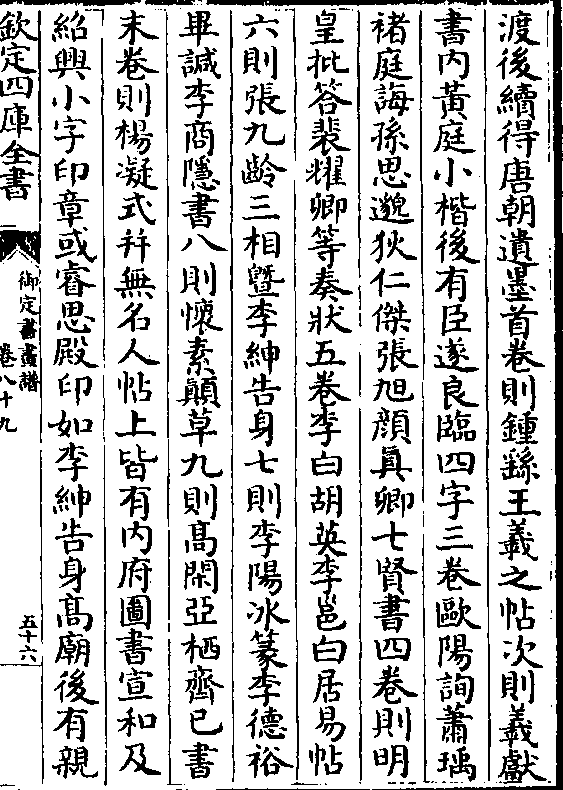 渡後續得唐朝遺墨首卷則鍾繇王羲之帖次則羲獻
書内黃庭小楷後有臣遂良臨四字三卷歐陽詢蕭瑀
褚庭誨孫思邈狄仁傑張旭顔真卿七賢書四卷則明
皇批答裴耀卿等奏狀五卷李白胡英李邕白居易帖
六則張九齡三相暨李紳告身七則李陽冰篆李德裕
畢諴李商隱書八則懷素顛草九則高閑亞栖齊已書
末卷則楊凝式并無名人帖上皆有内府圖書宣和及
紹興小字印章或睿思殿印如李紳告身高廟後有親
欽定四庫全書
御定書畫譜
卷八十九
五十六